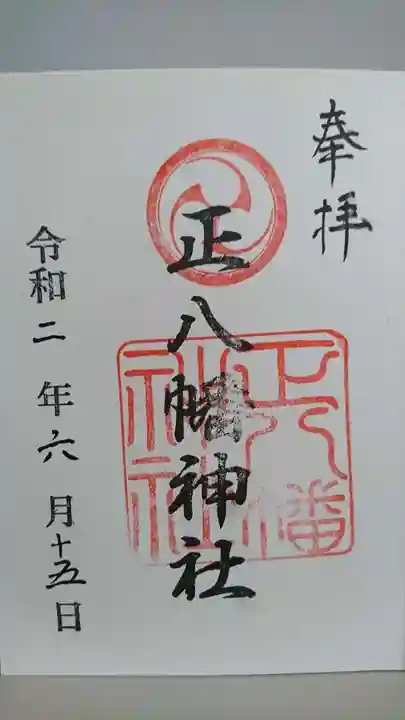 奉拝
正八幡神社
正八幡
神社
令和二年六月十五日